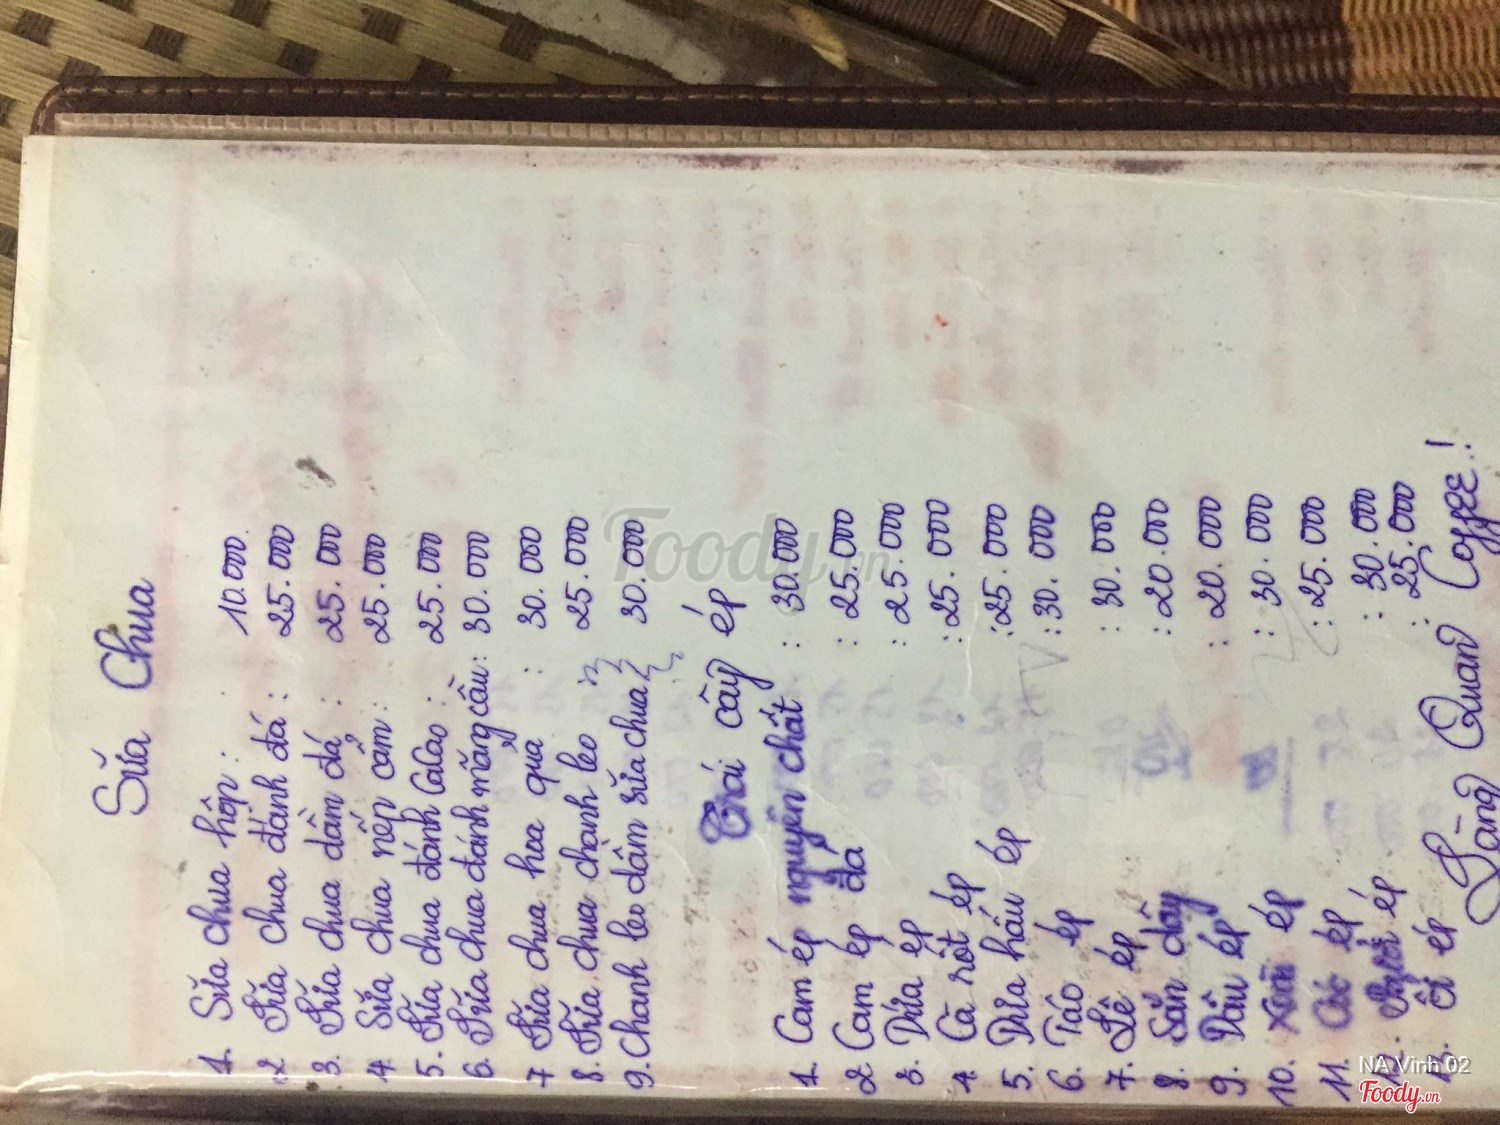 Sữa Chua
1. Sữa chua hộp : 10.000
2 Sữa chua đánh đá : 25.000
3. Sữa chua dầm đá : 25.000
4. Sữa chua nếp cẩm : 25.000
5. Sữa chua đánh CaCao : 25.000
6. Sữa chua đánh mãng cầu : 30.000
7 Sữa chua hoa quả : 30.000
8. Sữa chua chanh leo : 25.000
9. Chanh leo dầm sữa chua : 30.000
Trái cây ép
1. Cam ép nguyên chất : 30.000
2 Cam ép đá : 25.000
3. Dứa ép : 25.000
4. Cà rốt ép : 25.000
5. Dưa hấu ép : 25.000
6. Táo ép : 30.000
7. Lê ép : 30.000
8. Sắn dây : 20.000
9. Dâu ép : 20.000
10. Xoài ép : 30.000
11. Cóc ép : 25.000
12. ép : 30.000
13. ổi ép : 25.000
Làng Quan Coffee !
Foody.vn
NA Vinh 02
Foody.vn